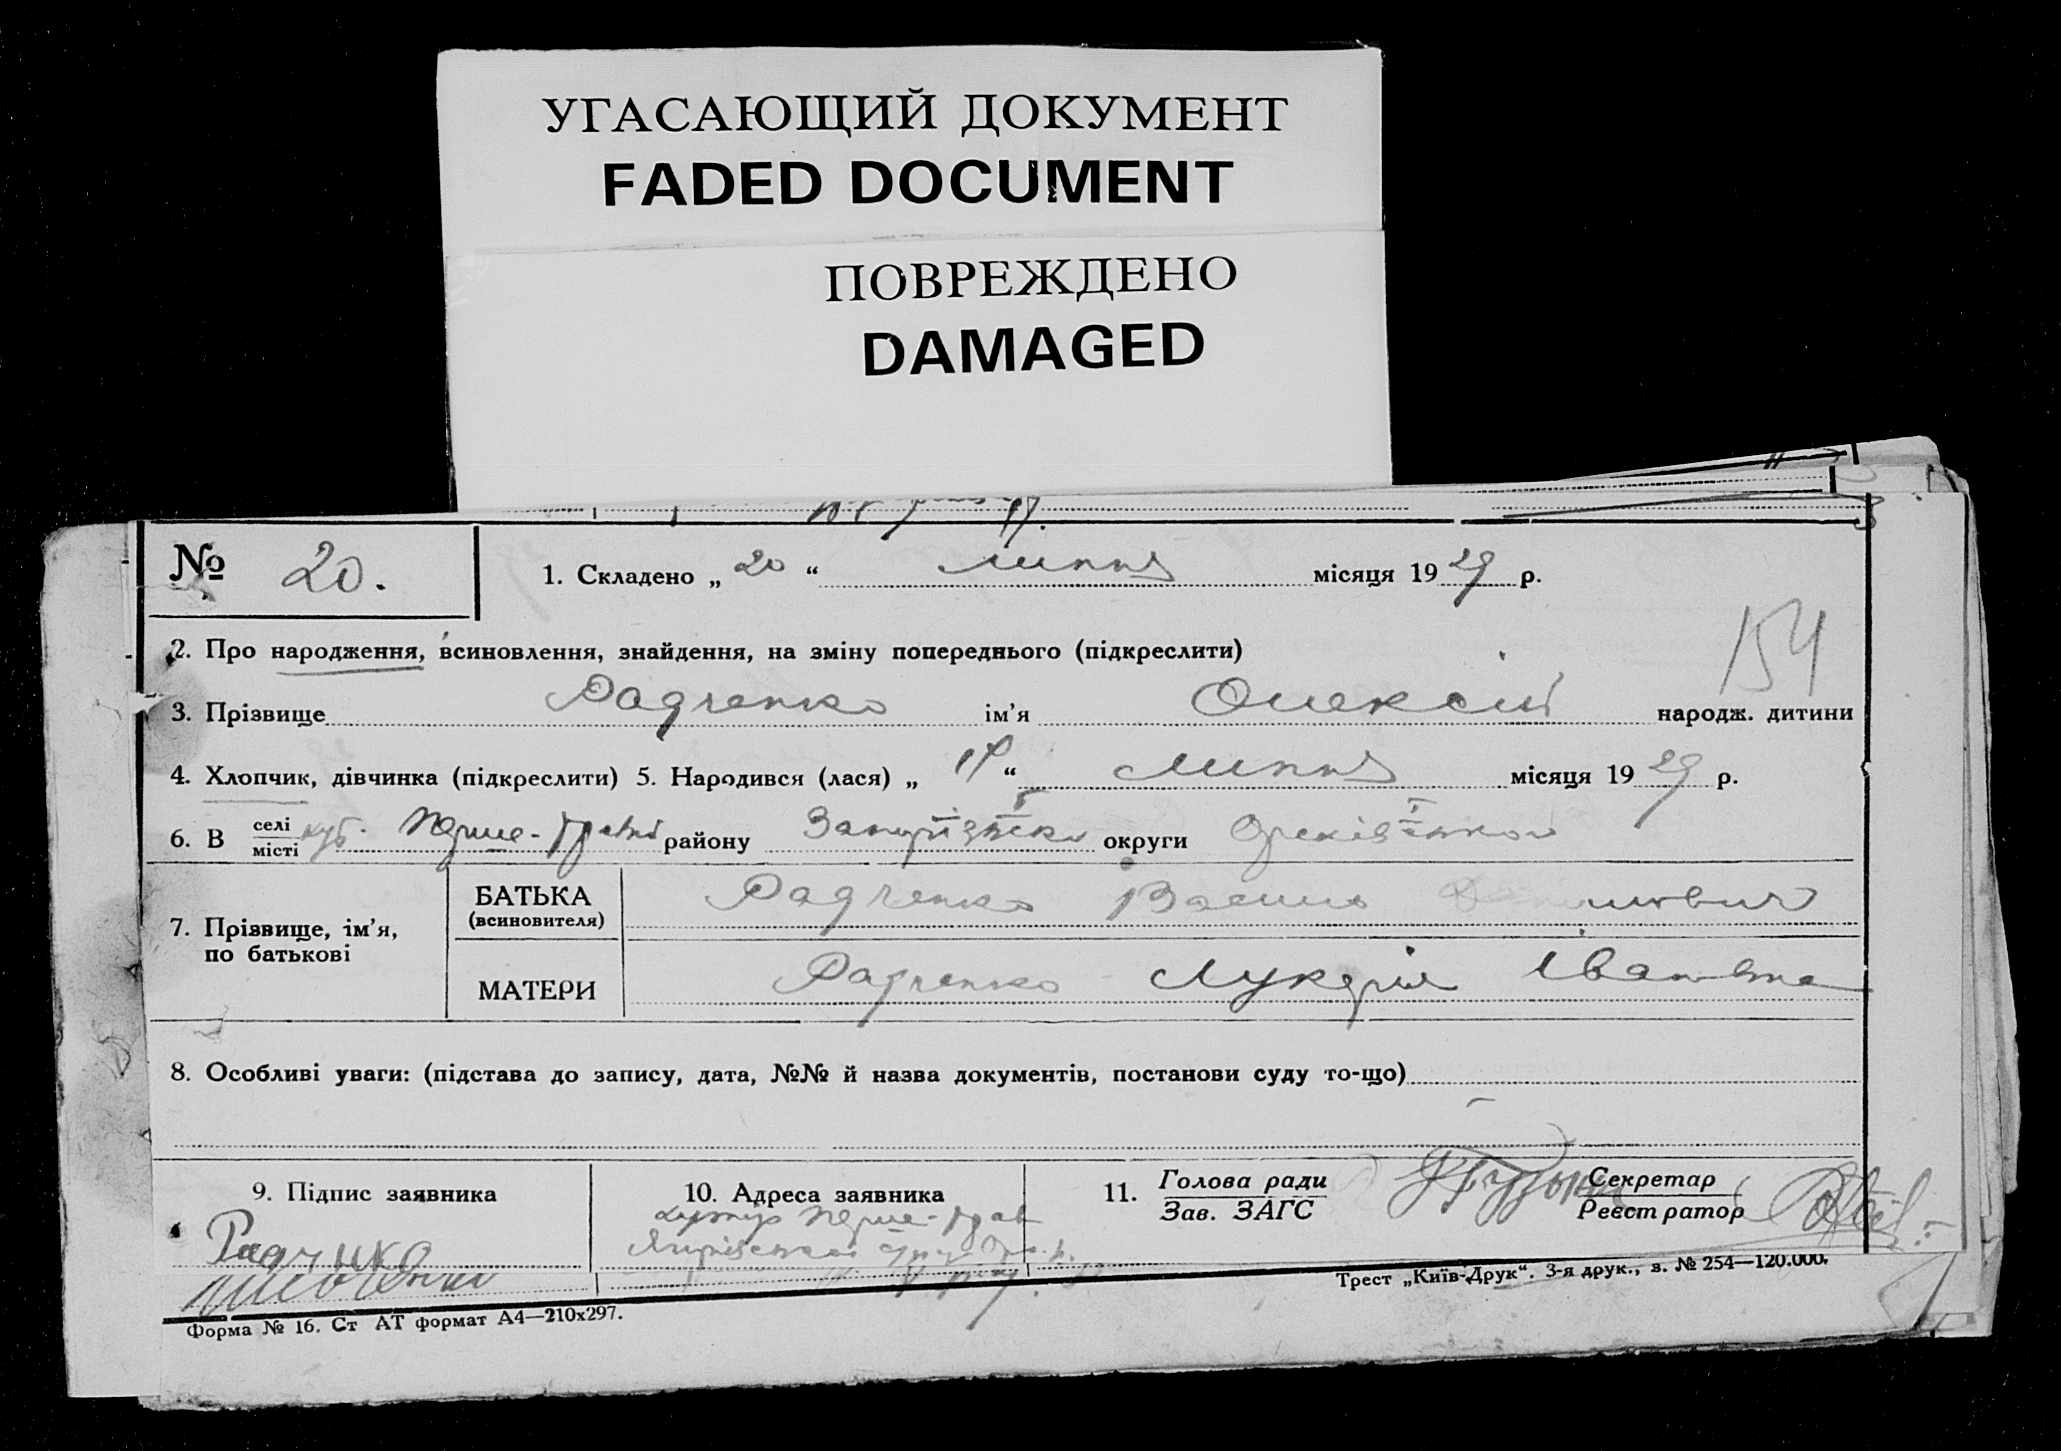 УГАСАЮЩИЙ ДОКУМЕНТ
FADED DOCUMENT
ПОВРЕЖДЕНО
DAMAGED
№ 20.
1. Складено „ 20 “ липня місяця 1929 р.
2. Про народження, всиновлення, знайдення, на зміну попереднього (підкреслити)
154
3. Прізвище Радченко ім'я Олексій народж. дитини
4. Хлопчик, дівчинка (підкреслити) 5. Народився (лася) „ “ липня місяця 1929 р.
6. В селі місті хут. Перше- району округи
7. Прізвище, ім'я, по батькові
БАТЬКА (всиновителя) Радченко Василь
МАТЕРИ Радченко Лукерія Іванівна
8. Особливі уваги: (підстава до запису, дата, №№ й назва документів, постанови суду то-що)
9. Підпис заявника
10. Адреса заявника
11. Голова ради Зав. ЗАГС
Секретар Реєстратор
хутір Перше-
Радченко
Трест „Київ-Друк“. 3-я друк., з. № 254—120.000.
Форма № 16. Ст АТ формат А4—210х297.